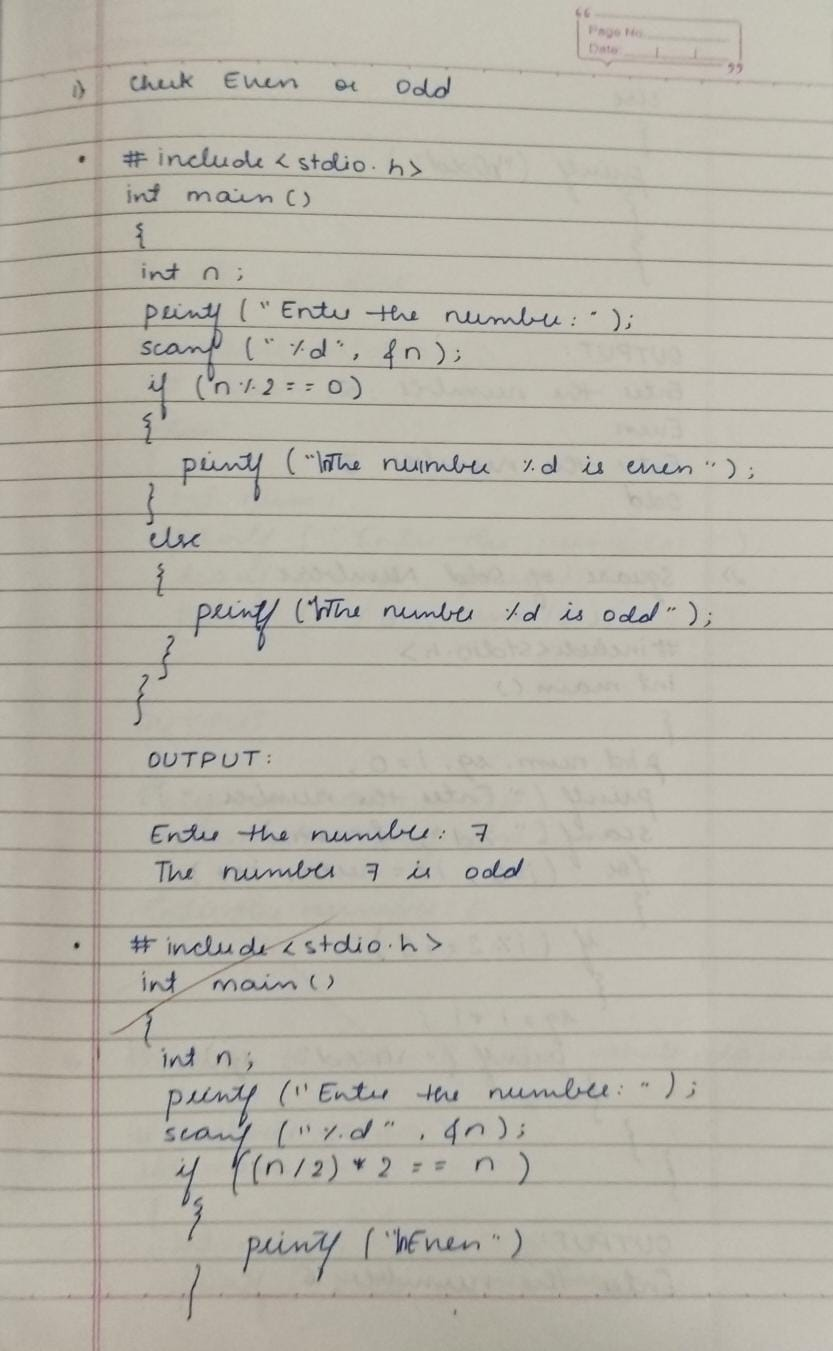 Page No.
Date:
1) Check Even or Odd
• # include < stdio.h>
int main ()
{
int n ;
printf ("Enter the number: ");
scanf ("%d", &n);
if (n%2 == 0)
{
printf ("\nThe number %d is even");
}
else
{
printf ("\nThe number %d is odd");
}
}
OUTPUT:
Enter the number: 7
The number 7 is odd
• # include < stdio.h>
int main ()
{
int n ;
printf ("Enter the number: ");
scanf ("%d", &n);
if ((n/2) * 2 == n )
{
printf ("\nEven")
}